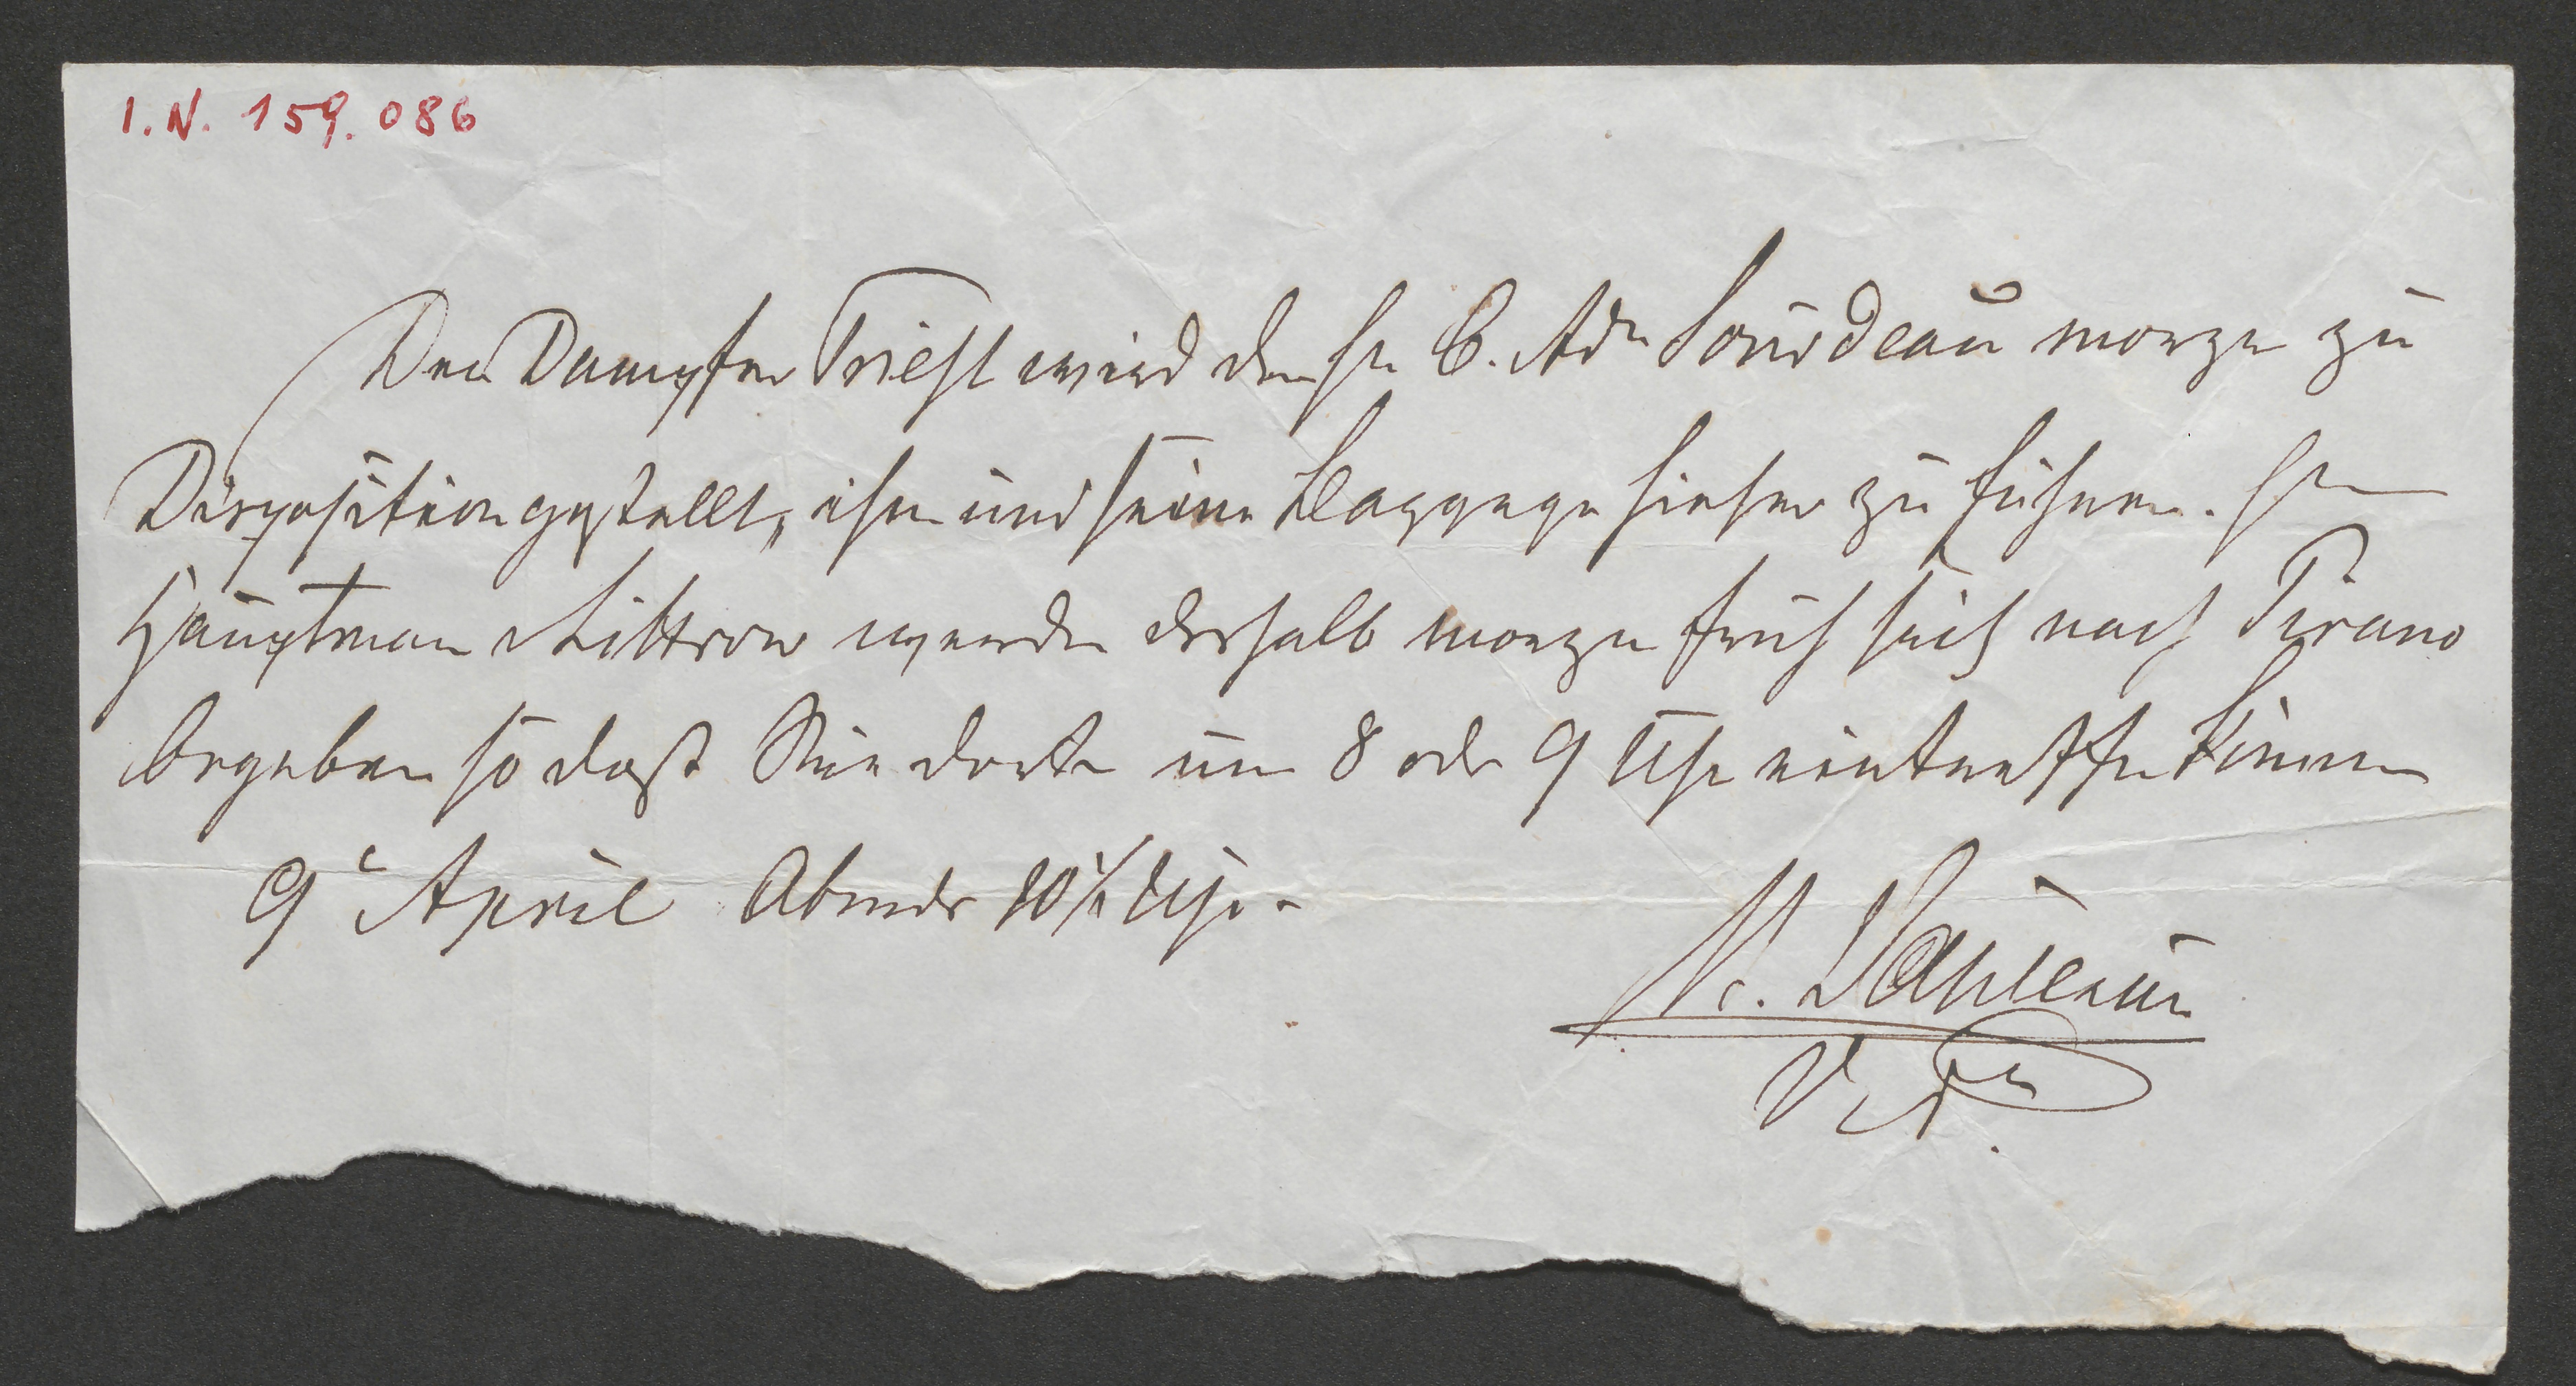 I.N. 159.086
Der Dampfer Triest wird dem Hr. C. Adl Sourdeau morgen zu
Disposition gestellt, ihn und seine Baggage hieher zu führen. Hr
Hauptman Littrow werden deshalb morgen früh sich nach Pirano
begeben so daß Sie dorten um 8 oder 9 Uhr eintreffen können
9t April Abends 10½ Uhr.